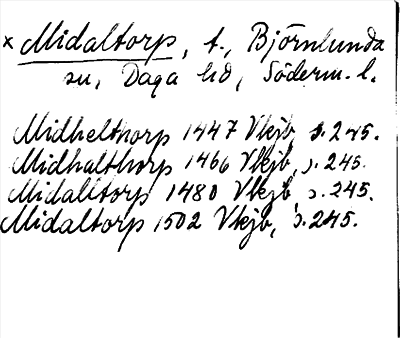 × Midaltorp, t., Björnlunda
sn, Daga hd, Söderm. l.
Midhelthorp 1447 Vkjb, s. 245.
Midhalthorp 1466 Vkjb, s. 245.
Midalltorp 1480 Vkjb, s. 245.
Midaltorp 1502 Vkjb, s. 245.